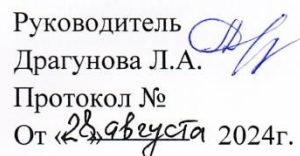 Руководитель
Драгунова Л.А.
Протокол №
От «28» августа 2024г.